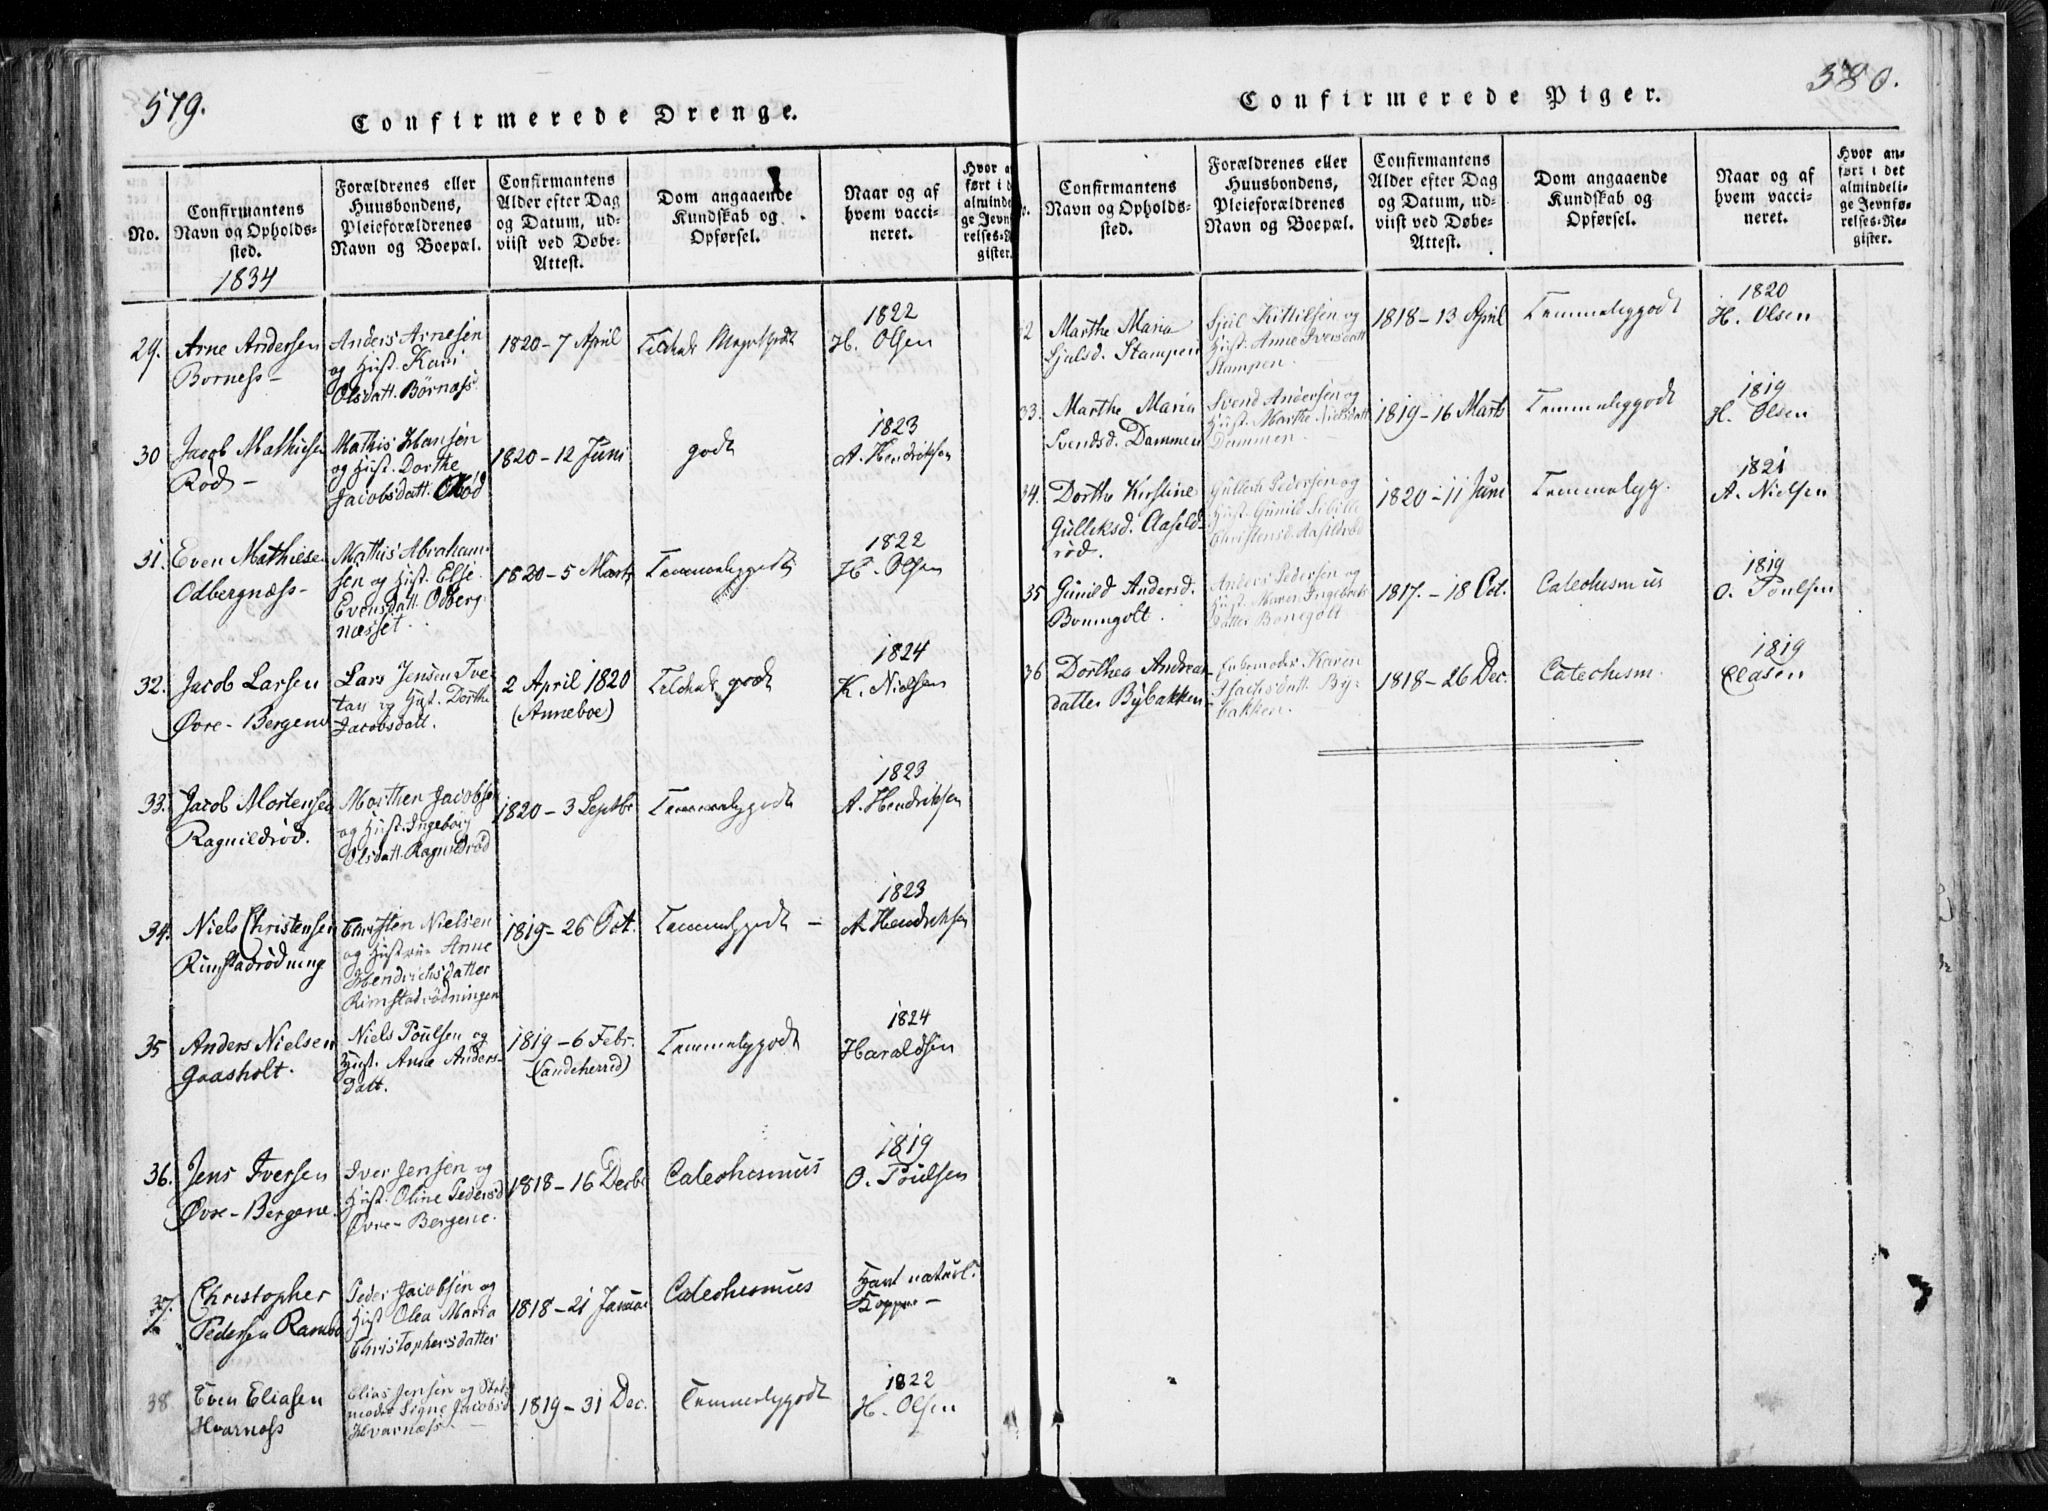 579.
Confirmerede Drenge.
No.
Confirmantens
Navn og Opholds-
sted.
1834
Forældrenes eller
Huusbondens,
Pleieforældrenes
Navn og Boepæl.
Confirmantens
Alder efter Dag
og Datum, ud-
viist ved Døbe-
Attest.
Dom angaaende
Kundskab og
Opførsel.
Naar og af
hvem vacci-
neret.
Hvor a
ført i d
almind
ge Jevn
relses-
gister.
29.
Arne Andersen
Borness-
Anders Arnesen
og Hust. Kari
Olsdatt. Börnæss.
1820-7 April
1822
H. Olsen
30
Jacob Mathiesen
Rød-
Mathis Hansen
og Hust. Dorthe
Jacobsdatt. Rød
1820-12 Juni
godt
1823
A. Hendriksen
31.
Even Mathiese
Odbergnæss-
Mathis Abraham-
sen og Hust. Else
Evensdatt. Odberg-
næsset.
1820-5 Marts
Temmeliggodt
1822
H. Olsen
32.
Jacob Larsen
Øvre-Bergene
Lars Jensen Tve-
tan og Hust. Dorthe
Jacobsdatt.
2 April 1820
(Anneboe)
godt
1824
K. Nielsen
33.
Jacob Mortensen
Ragnildrød.
Morthen Jacobse
og Hust. Ingeborg
Olsdatt. Ragnildrød
1820-3 Septbr
Temmeliggodt
1823
A. Hendriksen
34.
Niels Christensen
Rimstadrødning
Christen Nielsen
og Hustrue Anne
Hendrichsdatter
Rimstadrødningen
1819-26 Oct.
Temmeliggodt -
1823
A. Hendriksen
35
Anders Nielsen
Gaasholt.
Niels Poulsen og
Hust. Anne Anders-
datt.
1819-6 Febr.
(Sandeherred)
Temmeliggodt
1824
Haraldsen
36.
Jens Iversen
Øvre-Bergene.
Iver Jensen og
Hust. Oline Pedersd
Øvre-Bergene.
1818-16 Decbr
Catechismus
1819
O. Poulsen
37.
Christopher
Pedersen
Peder Jacobsen og
Hust. Olea Maria
Christophersdatter
1818-21 Januar
Catechismus
Havt naturl.
Kopper-
38
Even Eliasen
Hvarness
Elias Jensen og Sted
moder Signe Jacobsd
Hvarnæss-
1819-31 Dec.
Temmeliggodt
1822
H. Olsen
580.
Confirmerede Piger.
Confirmantens
Navn og Opholds-
sted.
Forældrenes eller
Huusbondens,
Pleieforældrenes
Navn og Boepæl.
Confirmantens
Alder efter Dag
og Datum, ud-
viist ved Døbe-
Attest.
Dom angaaende
Kundskab og
Opførsel.
Naar og af
hvem vacci-
neret.
Hvor an-
ført i det
almindeli-
ge Jevnfø-
relses-Re-
gister.
Marthe Maria
Sjulsd. Stampen
Sjul Kittilsen og
Hust. Anne Iversdatt
Stampen.
1818-13 April
Temmeliggodt
1820
H. Olsen
33.
Marthe Maria
Svendsd. Dammen
Svend Andersen og
Hust. Marthe Nielsdatt
Dammen.
1819-16 Marts
Temmeliggodt
1819
H. Olsen
34.
Dorthe Kirstine
Gulleksd. Aasild-
rød.
Gullech Pedersen og
Hust. Gunild Sibille
Christensd. Aasildrød
1820-11 Juni
Temmelig g.
1821
A. Nielsen
35
Gunild Andersd.
Bonnegolt.
Anders Pedersen og
Hust. Maren Ingebrets
datter Bonegolt
1817.-18 Oct.
Catechismus
1819
O. Poulsen
36
Dorthea Andreas
datter Bybakken
Karen
By-
bakken.
1818-26 Dec.
Catechism.
1819
Clasen